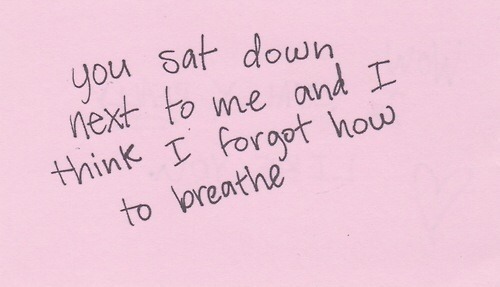 you sat down
next to me and I
think I forgot how
to breathe